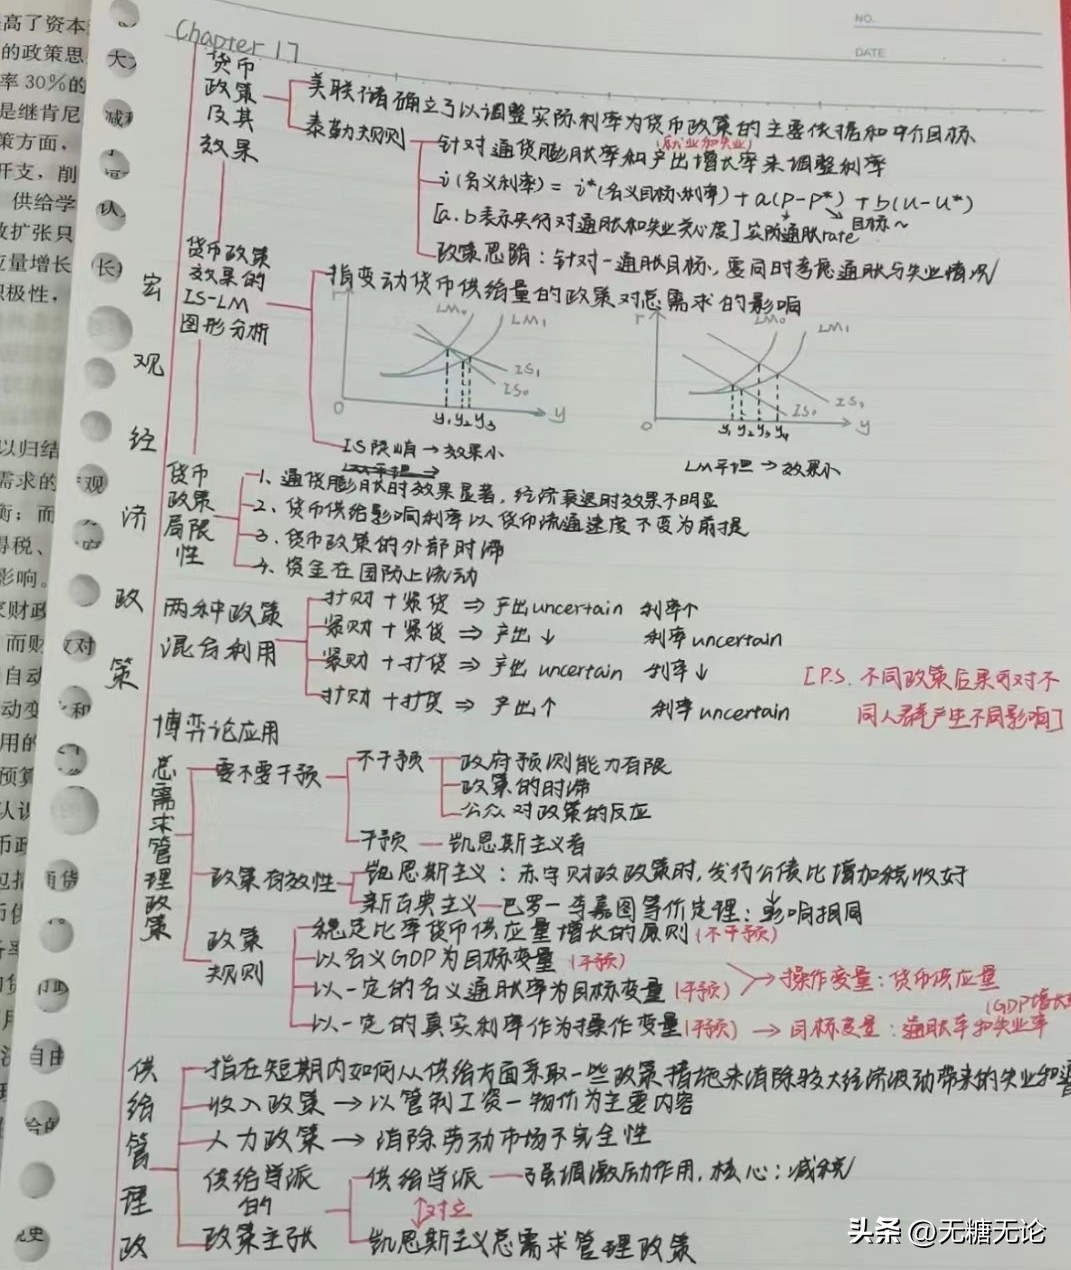 NO.
DATE
Chapter 17
高了资本
的政策思
率30%的
是继肯尼
策方面,
开支,削
供给学
应量增长
积极性,
以归结
需求的
衡;而
影响。
而财
自动
用的
预算
认识
大
减
认
长)
观
对
和
自由
宏观经济政策
货币政策及其效果
美联储确立了以调整实际利率为货币政策的主要依据和中介目标
泰勒规则
(就业和失业)
针对通货膨胀率和产出增长率来调整利率
i(名义利率) = i*(名义目标利率) + a(P-P*) + b(u-u*)
[a.b表示央行对通胀和失业关心度] 实际通胀rate 目标~
政策思路:针对一通胀目标,要同时考虑通胀与失业情况
货币政策效果的IS-LM图形分析
指变动货币供给量的政策对总需求的影响
r LM₀ LM₁ IS₁ IS₀ 0 y₁ y₂ y₃ y
r LM₀ LM₁ IS₁ IS₀ 0 y₁ y₂ y₃ y₄ y
IS陡峭→效果小
LM平坦→
LM平坦→效果小
货币政策局限性
1、通货膨胀时效果显著,经济衰退时效果不明显
2、货币供给影响利率以货币流通速度不变为前提
3、货币政策的外部时滞
4、资金在国际上流动
两种政策混合利用
扩财+紧货⇒产出uncertain 利率↑
紧财+紧货⇒产出↓ 利率uncertain
紧财+扩货⇒产出uncertain 利率↓
扩财+扩货⇒产出↑ 利率uncertain
[P.S.不同政策后果可对不
同人群产生不同影响]
博弈论应用
总需求管理政策
要不要干预
不干预
政府预测能力有限
政策的时滞
公众对政策的反应
干预—凯恩斯主义者
政策有效性
凯恩斯主义:赤字财政政策时,发行公债比增加税收好
新古典主义—巴罗-李嘉图等价定理:影响相同
政策规则
稳定比率货币供应量增长的原则(不干预)
以名义GDP为目标变量(干预)
以一定的名义通胀率为目标变量(干预)
→操作变量:货币供应量
以一定的真实利率作为操作变量(干预)
(GDP增长
→目标变量:通胀率和失业率
供给管理政
指在短期内如何从供给方面采取一些政策措施来消除较大经济波动带来的失业和
收入政策→以管制工资-物价为主要内容
人力政策→消除劳动市场不完全性
供给学派的政策主张
供给学派—强调激励作用,核心:减税
↕对立
凯恩斯主义总需求管理政策
头条 @无糖无论